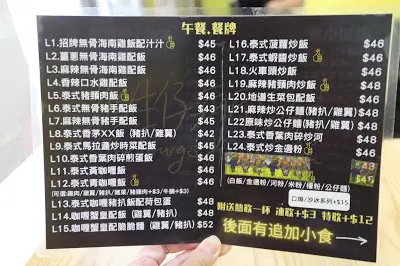 午餐.餐牌
L1.招牌無骨海南雞飯配汁汁 $45
L2.薑蔥無骨海南雞配飯 $46
L3.麻辣無骨海南雞配飯 $46
L4.香辣口水雞配飯 $46
L5.泰式豬頸肉飯 $46
L6.泰式無骨豬手配飯 $45
L7.麻辣無骨豬手配飯 $43
L8.泰式香茅XX飯 (豬扒/雞翼) $42
L9.泰式馬拉盞炒時菜配飯 $45
L10.泰式香葉肉碎煎蛋飯 $46
L11.泰式黃咖喱飯 $46
L12.泰式青咖喱飯 $46
L13.泰式咖喱豬扒配荷包蛋 $48
L14.咖喱蟹皇配飯 (雞翼/豬扒) $48
L15.咖喱蟹皇配脆脆麵 (雞翼/豬扒) $52
L16.泰式菠蘿炒飯 $46
L17.泰式蝦醬炒飯 $46
L18.火車頭炒飯 $46
L19.麻辣豬頸肉炒飯 $46
L20.地道生菜包配飯 $46
L21.麻辣炒公仔麵(豬扒/雞翼) $48
L22.原味炒公仔麵(豬扒/雞翼) $48
L23.泰式香葉肉碎炒河 $48
L24.泰式炒金邊粉 $46
(白飯/金邊粉/河粉/米粉/檬粉/公仔麵)
附送熱飲一杯 凍飲+$3 特飲+$12
後面有追加小食